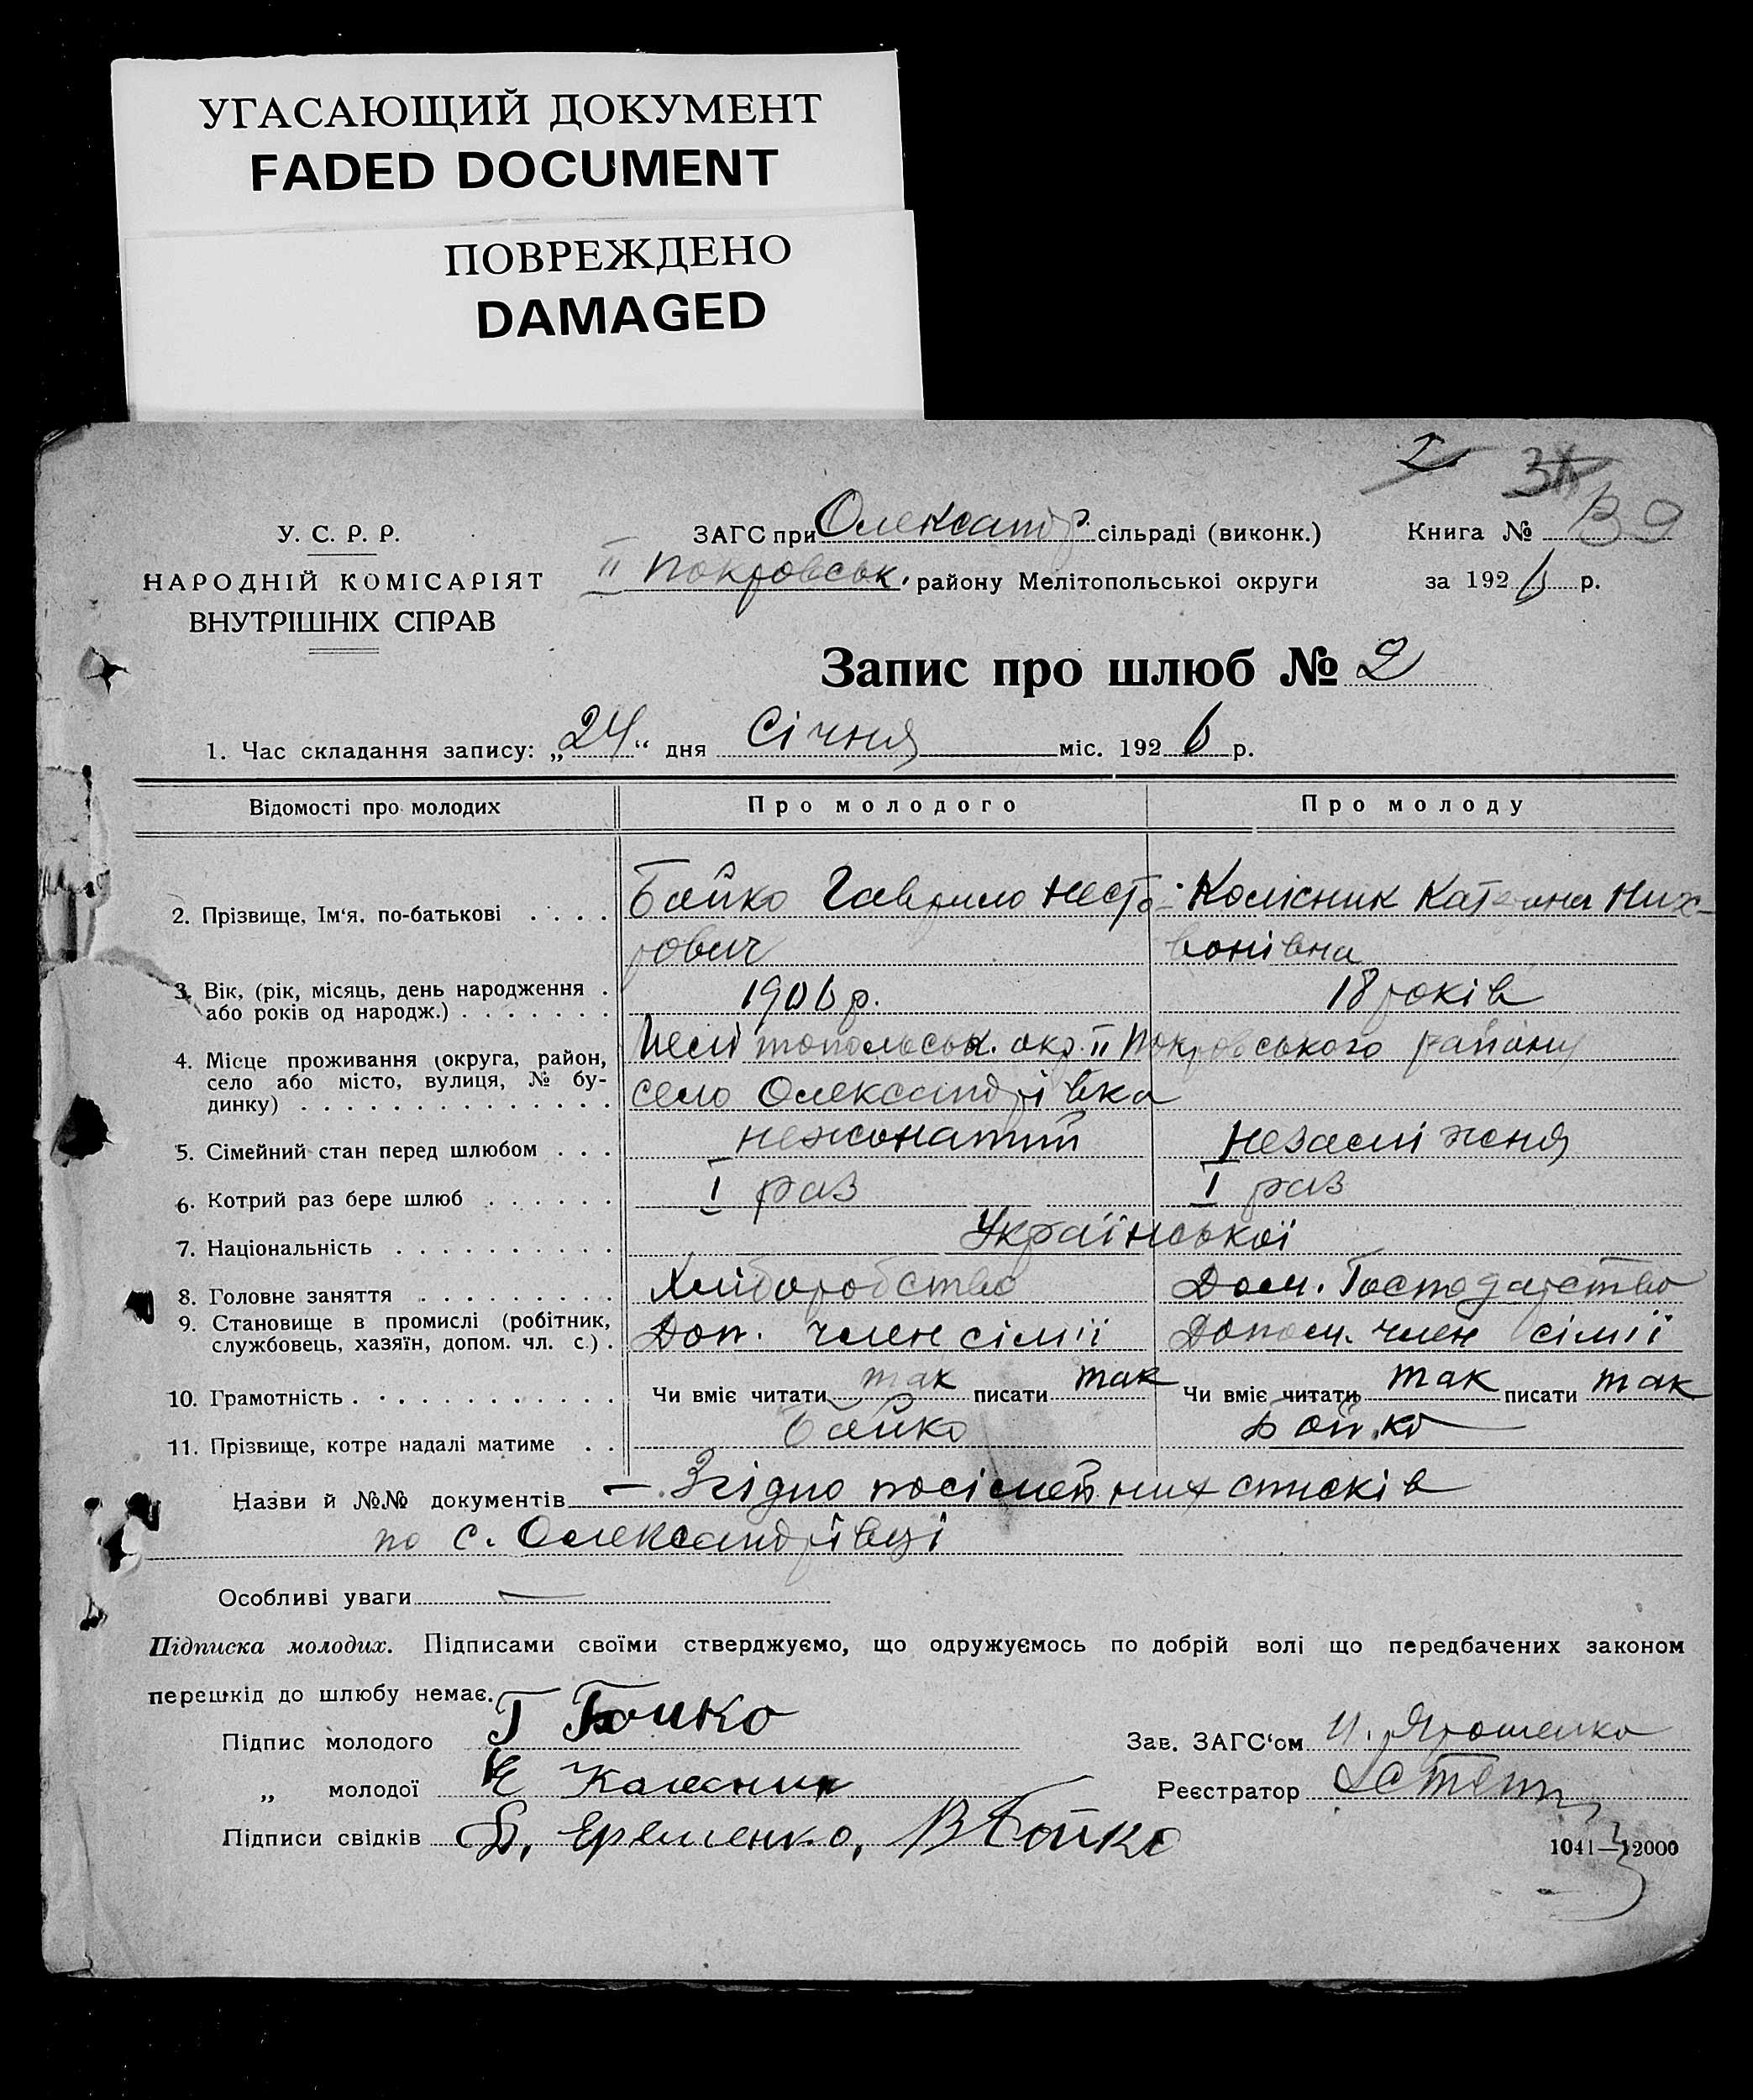 УГАСАЮЩИЙ ДОКУМЕНТ
FADED DOCUMENT
ПОВРЕЖДЕНО
DAMAGED
2
У. С. Р. Р.
НАРОДНІЙ КОМІСАРІЯТ
ВНУТРІШНІХ СПРАВ
ЗАГС при Олександр. сільраді (виконк.)
II Покровськ. району Мелітопольськоі округи
Книга №
за 1926 р.
Запис про шлюб № 2
1. Час складання запису: „24“ дня Січня міс. 1926 р.
Відомості про молодих Про молодого Про молоду
2. Прізвище, Ім‘я, по-батькові . . . . Бойко Гаврило Несто- Колісник Катерина Них-
рович вонівна
3. Вік, (рік, місяць, день народження . 1906 р. 18 років
або років од народж.) . . . . . . .
4. Місце проживання (округа, район, Мелітопольськ. окр. II Покровського району
село або місто, вулиця, № бу- село Олександрівка
динку) . . . . . . . . . . . . . .
5. Сімейний стан перед шлюбом . . . нежонатий незаміжня
6. Котрий раз бере шлюб . . . . . . I раз I раз
7. Національність . . . . . . . . . . Української
8. Головне заняття . . . . . . . . . Хліборобство Дом. Господарство
9. Становище в промислі (робітник,
службовець, хазяїн, допом. чл. с.) . Доп. член сімії Допом. член сімії
10. Грамотність . . . . . . . . . . . Чи вміє читати так писати так Чи вміє читати так писати так
11. Прізвище, котре надалі матиме . . Бойко Бойко
Назви й №№ документів — Згідно посімейних списків
по с. Олександрівці
Особливі уваги —
Підписка молодих. Підписами своїми стверджуємо, що одружуємось по добрій волі що передбачених законом
перешкід до шлюбу немає.
Підпис молодого Г Бойко
Зав. ЗАГС‘ом И. Ярошенко
„ молодої Е Колесник
Реєстратор
Підписи свідків Д. Еременко, В Бойко
1041—12000